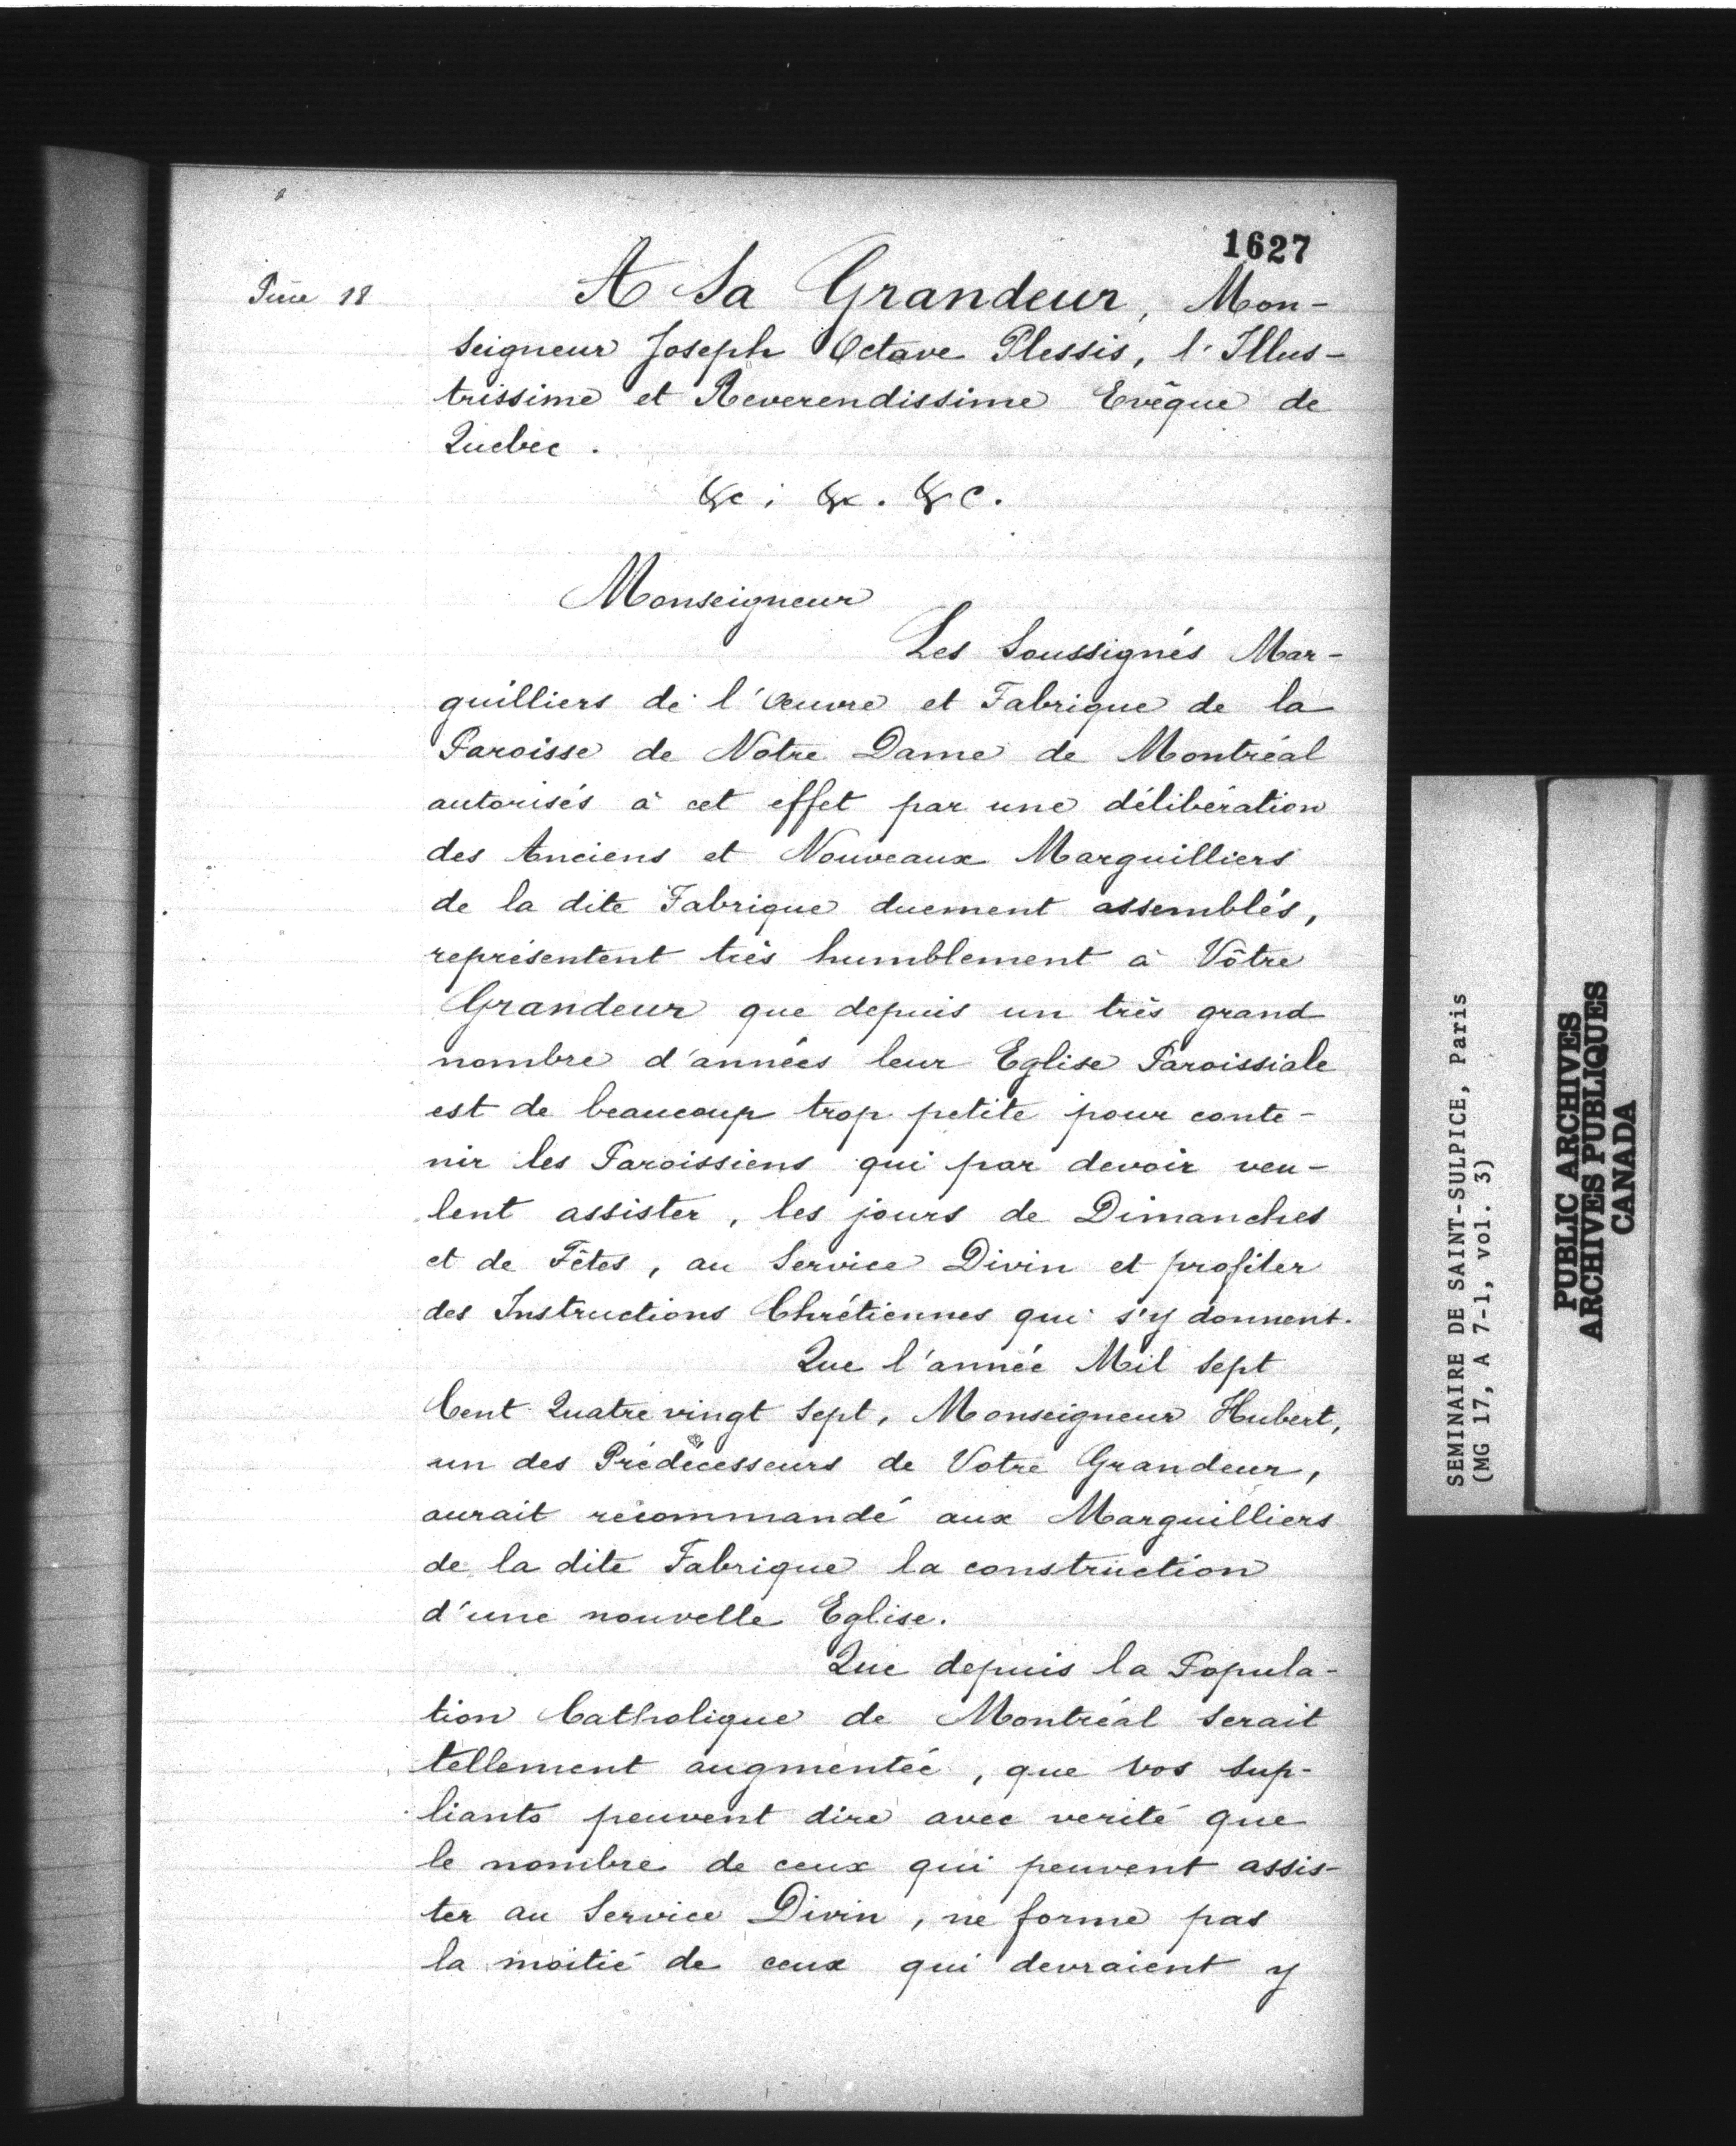 1627
18
A Sa Grandeur, Mon-
seigneur Joseph Octave Plessis, l'Illus-
trissime et Reverendissime Evêque de
Quebec.
&c; &c. &c.
Monseigneur
Les Soussignés Mar-
guilliers de l'Œuvre et Fabrique de la
Paroisse de Notre Dame de Montréal
autorisés à cet effet par une délibération
des Anciens et Nouveaux Marguilliers
de la dite Fabrique duement assemblés,
représentent très humblement à Vôtre
Grandeur que depuis un très grand
nombre d'années leur Eglise Paroissiale
est de beaucoup trop petite pour conte-
nir les Paroissiens qui par devoir veu-
lent assister, les jours de Dimanches
et de Fêtes, au Service Divin et profiter
des Instructions Chrétiennes qui s'y donnent.
Que l'année Mil Sept
Cent Quatre vingt Sept, Monseigneur Hubert,
un des Prédécesseurs de Votre Grandeur,
aurait récommandé aux Marguilliers
de la dite Fabrique la construction
d'une nouvelle Eglise.
Que depuis la Popula-
tion Catholique de Montréal Serait
tellement augmentée, que vos Sup-
liants peuvent dire avec verité que
le nombre de ceux qui peuvent assis-
ter au Service Divin, ne forme pas
la moitié de ceux qui devraient y
SEMINAIRE DE SAINT-SULPICE, Paris
(MG 17, A 7-1, vol. 3)
PUBLIC ARCHIVES
ARCHIVES PUBLIQUES
CANADA